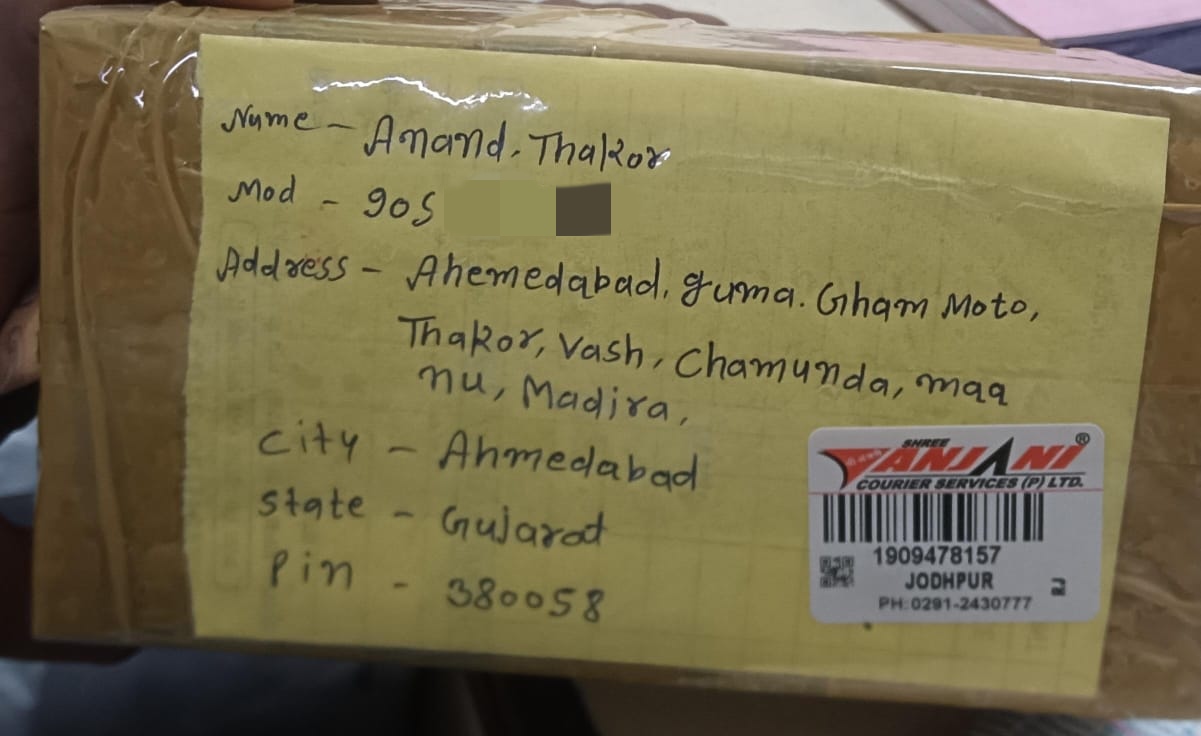 Name - Anand. Thakor
Mod - 905
Address - Ahemedabad, guma. Gham Moto,
Thakor, Vash, Chamunda, maa
nu, Madira,
City - Ahmedabad
State - Gujarat
Pin - 380058
SHREE
ANJANI®
COURIER SERVICES (P) LTD.
1909478157
JODHPUR
PH:0291-2430777